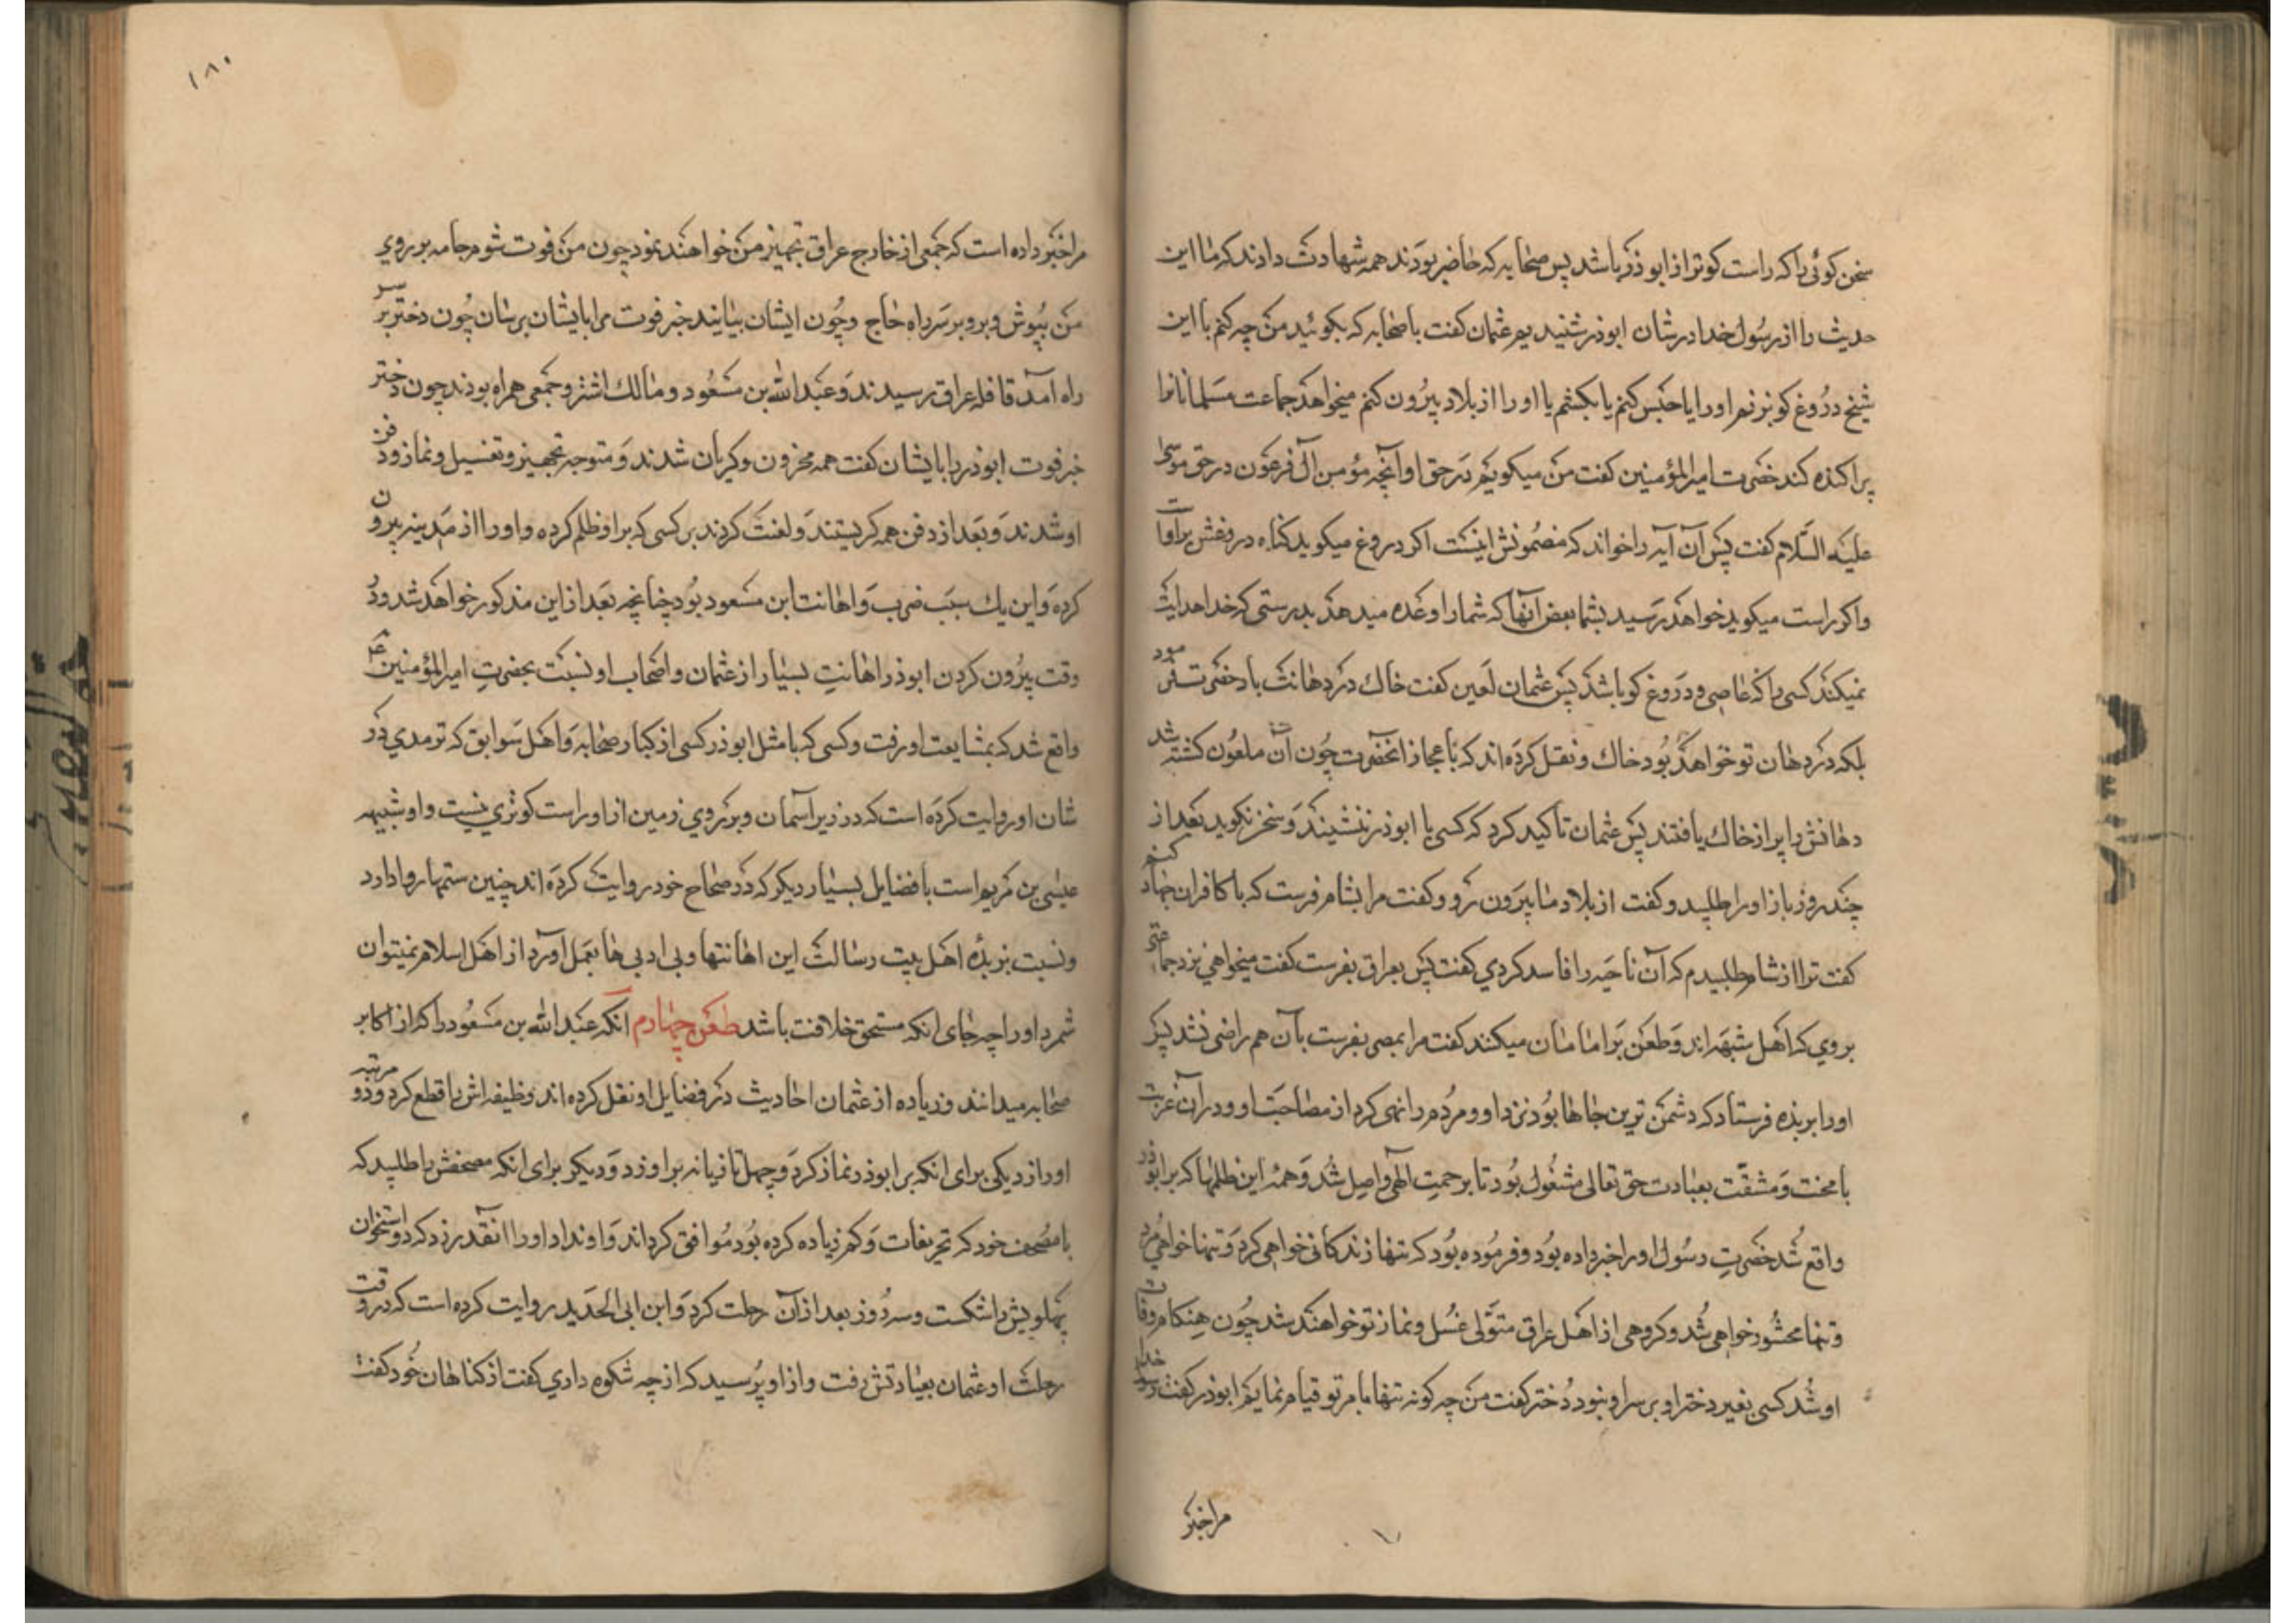 سخن کوئی را که راست کوتر از ابو ذر باشد پس صحابه که حاضر بودند همه شهادت دادند که ما این
حدیث را از رسول خدا در شان ابوذر شنیدیم عثمان کفت باصحابه که بکوئید من چه کنم با این
شیخ دروغ کو بزنم او را یا حبس کنم یا بکشم یا او را از بلاد بیرون کنم میخواهد جماعت مسلمانانرا
پراکنده کند حضرت امیرالمؤمنین کفت من میکویم در حق او آنچه مؤمن آل فرعون در حق موسی
علیه السلام کفت پس آن آیه را خواند که مضمونش اینست اکر دروغ میکوید کناه دروغش بر اوست
و اکر راست میکوید خواهد رسید بشما بعض آنها که شما را وعده میدهد بدرستی که خدا هدایت
نمیکند کسی را که عاصی و دروغ کو باشد پس عثمان لعین کفت خاک در دهانت باد حضرت فرمود
بلکه در دهان تو خواهد بود خاک و نقل کرده اند که باعجاز انحضرت چون آن ملعون کشته شد
دهانش را پر از خاک یافتند پس عثمان تأکید کرد که کسی با ابوذر ننشیند و سخن نکوید بعد از
چند روز باز او را طلبید و کفت از بلاد ما بیرون رو و کفت مرا بشام فرست که با کافران جهاد کنم
کفت ترا از شام طلبیدم که آن ناحیه را فاسد کردی کفت پس بعراق بفرست کفت میخواهی نزد جماعتی
بروی که اهل شبهه اند و طعن بر امامان میکنند کفت مرا بمصر بفرست بآن هم راضی نشد پس
او را بربذه فرستاد که دشمن ترین جاها بود نزد او و مردم را نهی کرد از مصاحبت او و در آن غربت
با محنت و مشقت بعبادت حق تعالی مشغول بود تا برحمت الهی واصل شد و همه این ظلمها که بر ابوذر
واقع شد حضرت رسول او را خبر داده بود و فرموده بود که تنها زندکانی خواهی کرد و تنها خواهی مرد
و تنها محشور خواهی شد و کروهی از اهل عراق متولی غسل و نماز تو خواهند شد چون هنکام وفات
او شد کسی بغیر دختر او بر سر او نبود دختر کفت من چه کونه تنها بامر تو قیام نمایم ابوذر کفت رسول خدا
مرا خبر
۱۸۰
مرا خبر داده است که جمعی از خارج عراق تجهیز من خواهند نمود چون من فوت شوم جامه بر روی
من بپوش و برو بر سر راه حاج و چون ایشان بیایند خبر فوت مرا بایشان برسان چون دختر بر سر
راه آمد قافله عراق رسیدند و عبدالله بن مسعود و مالک اشتر و جمعی همراه بودند چون دختر
خبر فوت ابوذر را بایشان کفت همه محزون و کریان شدند و متوجه تجهیز و تغسیل و نماز و دفن
او شدند و بعد از دفن همه کریستند و لعنت کردند بر کسی که بر او ظلم کرده و او را از مدینه بیرون
کرده و این یک سبب ضرب و اهانت ابن مسعود بود چنانچه بعد از این مذکور خواهد شد و در
وقت بیرون کردن ابوذر اهانت بسیار از عثمان و اصحاب او نسبت بحضرت امیرالمؤمنین ع
واقع شد که بمشایعت او رفت و کسی که با مثل ابوذر کسی از کبار صحابه و اهل سوابق که ترمدی در
شان او روایت کرده است که در زیر آسمان و بر روی زمین از او راست کوتری نیست و او شبیه
عیسی بن مریم است با فضایل بسیار دیکر که در صحاح خود روایت کرده اند چنین ستمها روا دارد
و نسبت بزبده اهل بیت رسالت این اهانتها و بی ادبی ها بعمل آورد از اهل اسلام نمیتوان
شمرد او را چه جای انکه مستحق خلافت باشد طعن چهارم انکه عبدالله بن مسعود را که از اکابر
صحابه میدانند و زیاده از عثمان احادیث در فضایل او نقل کرده اند وظیفه اش را قطع کرد و دو مرتبه
او را زد یکی برای انکه بر ابوذر نماز کرد و چهل تازیانه بر او زد و دیکر برای انکه مصحفش را طلبید که
با مصحف خود که تحریفات و کم زیاده کرده بود موافق کرداند و او نداد او را انقدر زد که دو استخوان
پهلویش را شکست و سه روز بعد از آن رحلت کرد و ابن ابی الحدید روایت کرده است که در وقت
رحلت او عثمان بعیادتش رفت و از او پرسید که از چه شکوه داری کفت از کناهان خود کفت